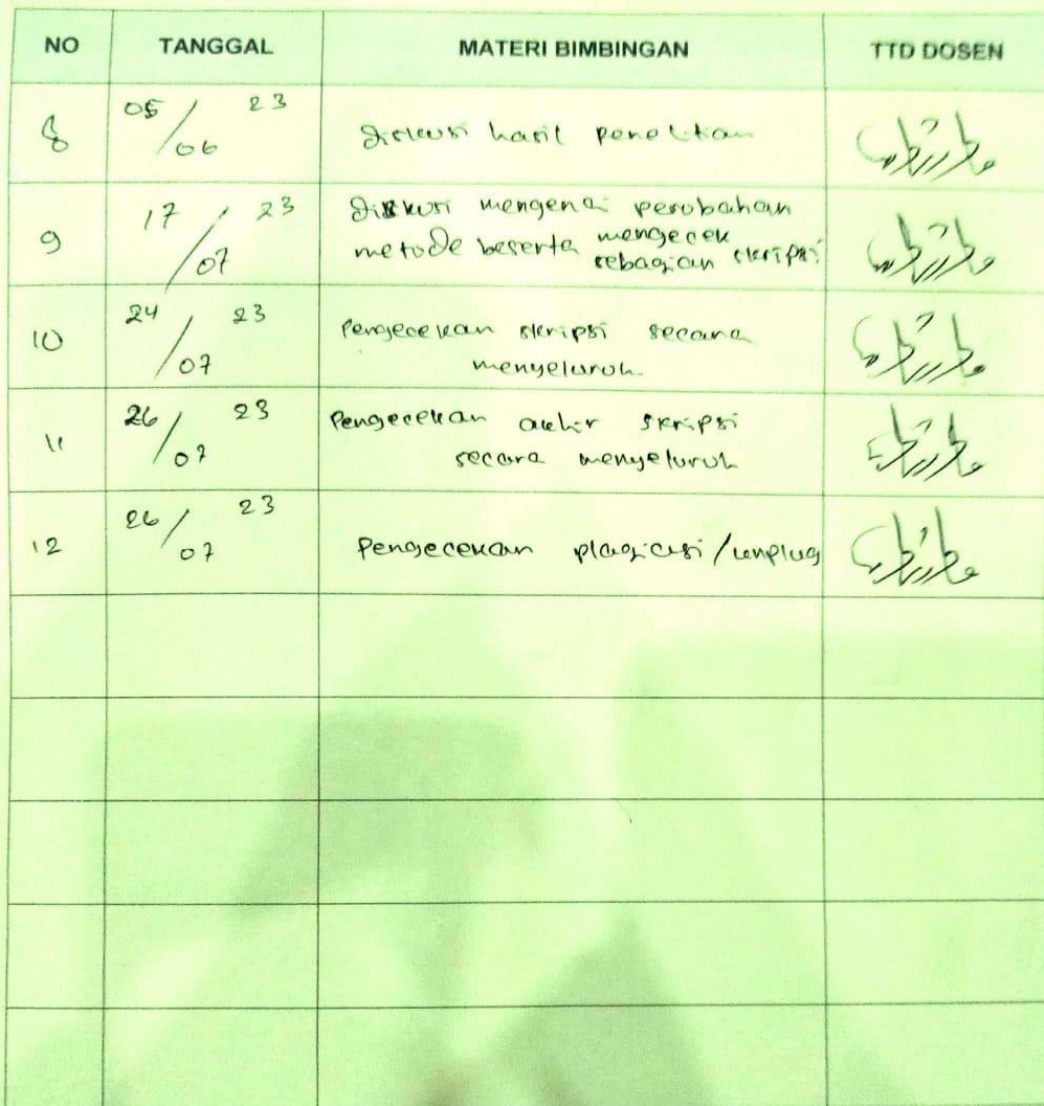 NO TANGGAL MATERI BIMBINGAN TTD DOSEN
8 05/06 23 Diskusi hasil penelitian
9 17/07 23 Diskusi mengenai perubahan
metode beserta mengecek
sebagian skripsi
10 24/07 23 Pengecekan skripsi secara
menyeluruh
11 26/07 23 Pengecekan akhir skripsi
secara menyeluruh
12 26/07 23 Pengecekan plagiasi/unplug